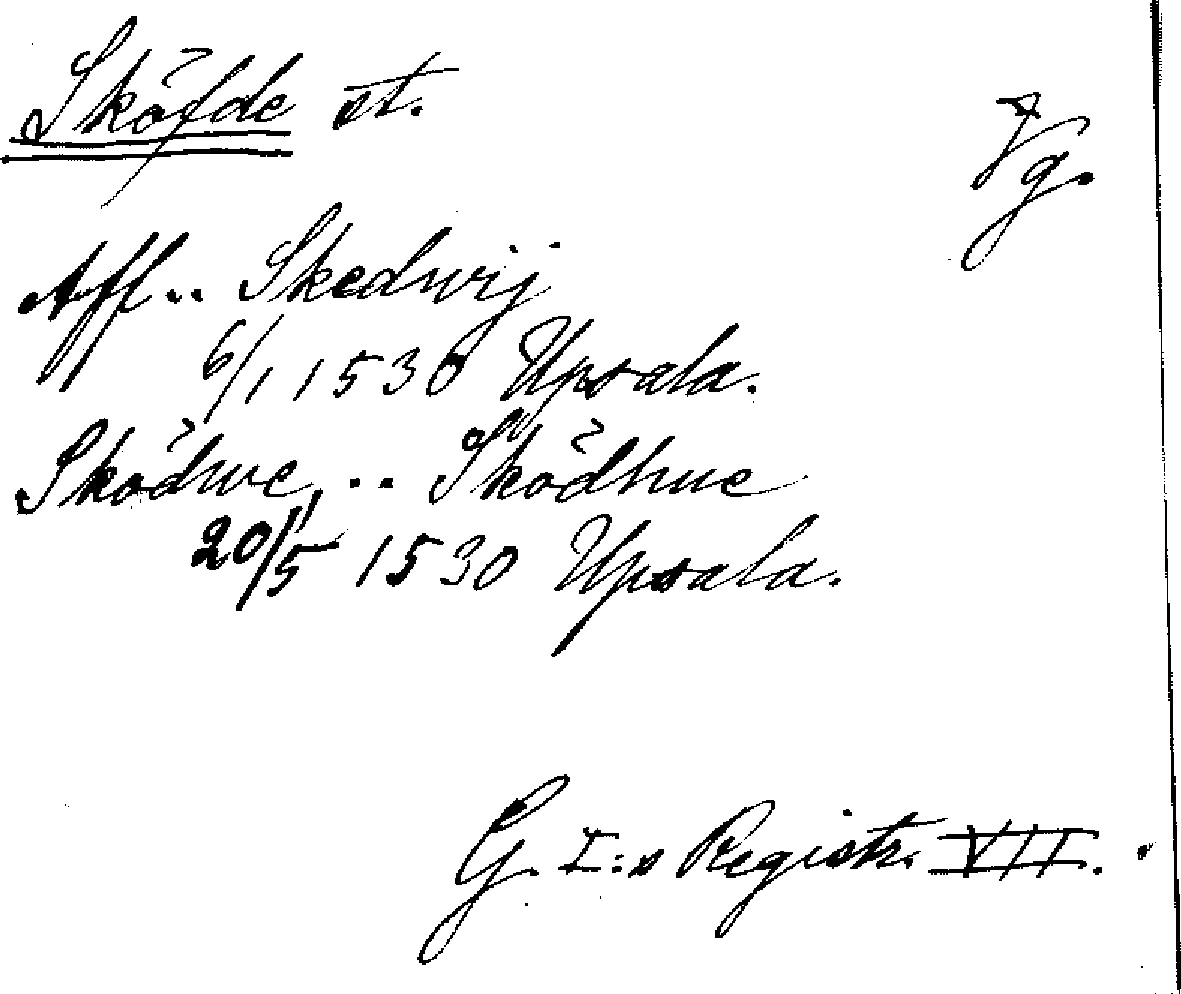 Sköfde st.
Vg.
Aff .. Skedwij
6/1 1530 Upsala.
Sködwe, .. Sködhue
20/5 1530 Upsala.
G. I:s Registr. VII.